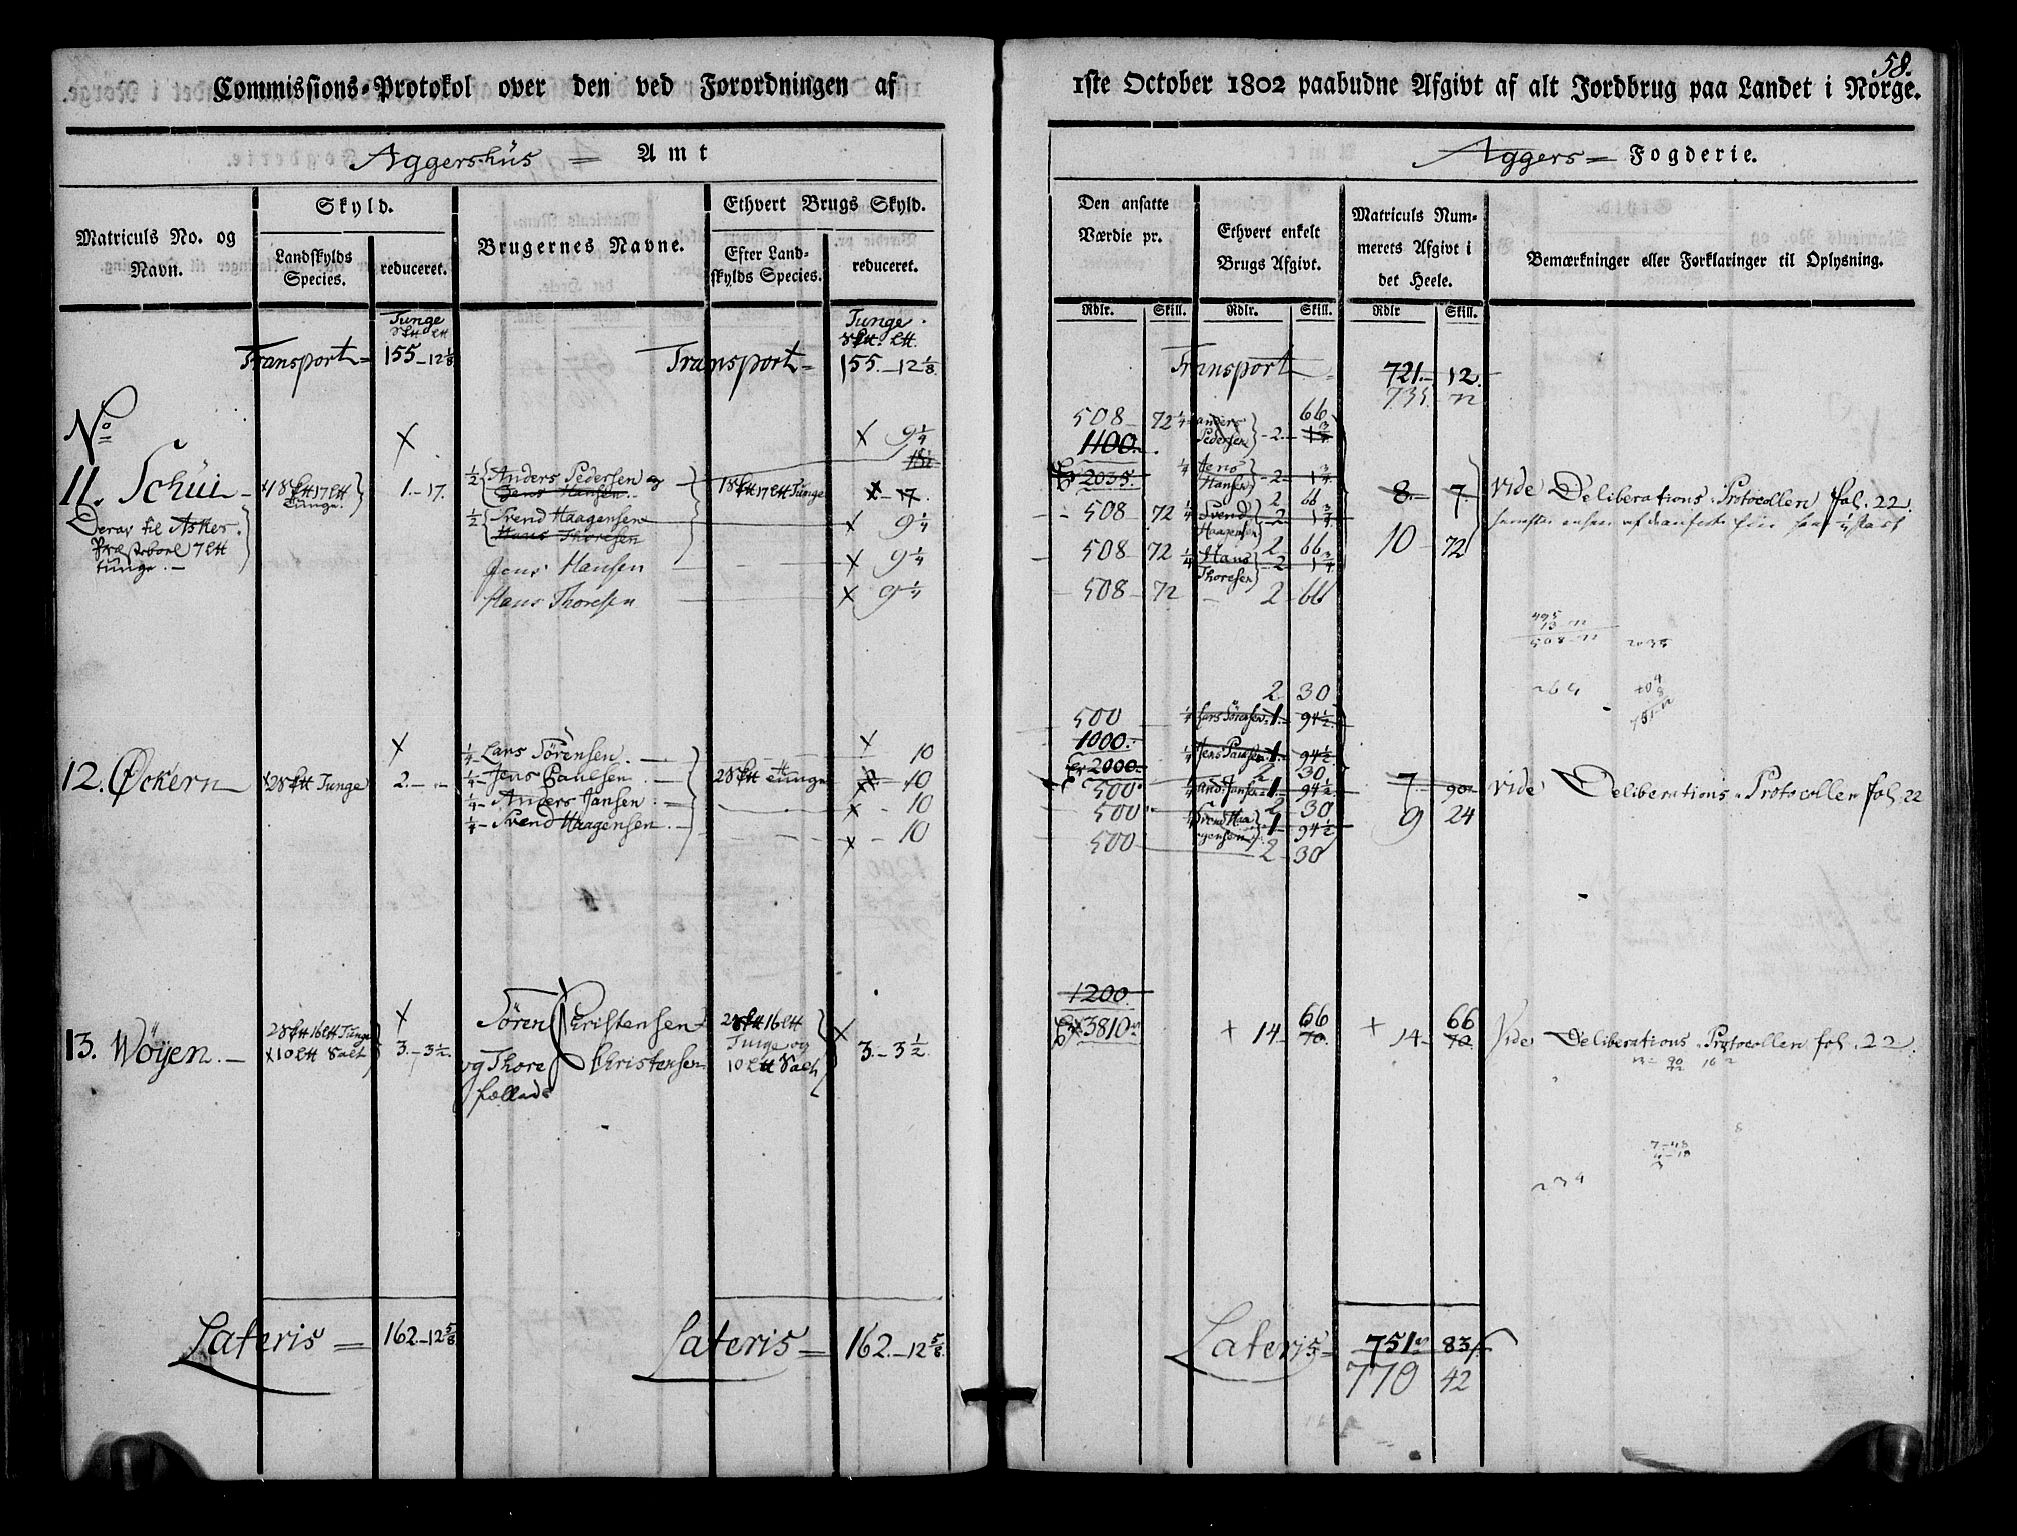 58.
Commissions-Protokol over den ved Forordningen af
1ste October 1802 paabudne Afgivt af alt Jordbrug paa Landet i Norge.
Aggershüs = Amt
Aggers = Fogderie.
Matriculs No. og Navn.
Skyld.
Landskylds Species.
reduceret.
Brugernes Navne.
Ethvert Brugs Skyld.
Efter Landskylds Species.
reduceret.
Den ansatte Værdie pr.
Ethvert enkelt Brugs Afgivt.
Matriculs Nummerets Afgivt i det Heele.
Bemærkninger eller Forklaringer til Oplysning.
Rdlr. Skill. Rdlr. Skill. Rdlr Skill.
Tunge
Tunge
Transport = 155 - 12 1/8 Transport = 155. - 12 1/8
Transport = 721. - 12.
735 - 72
No
11. Schüi - 1 Sktt 17 Ltt Tunge. 1. - 17.
Deraf til Asker Præstebord 7 Ltt tunge. -
1/2 Anders Pedersen og
Jens Hansen.
1/2 Svend Haagensen
Hans Thoresen
Jens Hansen
Hans Thoresen
1 Sktt 17 Ltt Tunge
x 9 1/4
18 1/2
x - 17.
x 9 1/4
x 9 1/4
x 9 1/4
508 - 72 1/4 Anders Pedersen - 2. 66
1100.
2035. 1/4 Jens Hansen - 2 - 1 3/4
508 - 72 1/4 Svend Haagensen 2 66
508 - 72 1/4 Hans Thoresen 2 66
508 - 72 - 2 - 66
8. - 7.
10 - 72
vide Deliberations Protocollen fol. 22.
495
13 - 72
508 - 72 2035
264
12. Öckern 2 Sktt Tunge 2. - " -
1/4 - Lars Sörensen. -
1/4 - Jens Paulsen. -
1/4 - Anders Jansen. -
1/4 - Svend Haagensen. -
2 Sktt tunge
x - 10
x - 10
x - 10
x - 10
2 30
500 1/4 Lars Sörensen 1. 94 1/2
1000.
2000. 1/4 Jens Paulsen 1. 94 1/2
2 30
500 1/4 And: Jansen 1. 94 1/2
2 30
500 1/4 Svend Haagensen 1 - 94 1/2
500 - 2 - 30
7. - 90
9 24
vide Deliberations - Protocollen fol. 22
13. Wöyen. - 2 Sktt 16 Ltt Tunge 10 Ltt Salt 3. - 3 1/2.
Sören Christensen
og Thore Christensen
fællads
2 Sktt 16 Ltt Tunge og 10 Ltt Salt
x 3. - 3 1/2.
1200.
3810
+ 14 - 66
70.
+ 14 - 66
70.
Vide Deliberations - Protocollen fol. 22.
7 - 48
234
Lateris = 162. - 12 5/8 Lateris = 162. - 12 5/8.
Lateris = 751 83
770 42